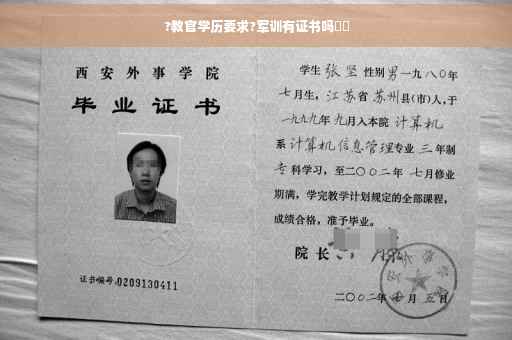 ?教官学历要求?军训有证书吗▯▯
西安外事学院
毕业证书
证书编号:0209130411
学生 张坚 性别 男 一九八〇年
七月生, 江苏省 苏州县(市)人,于
一九九九年 九月入本院 计算机
系 计算机信息管理专业 三 年制
专 科学习, 至二〇〇二年 七月修业
期满, 学完教学计划规定的全部课程,
成绩合格, 准予毕业。
院长
二〇〇二年 月 五日